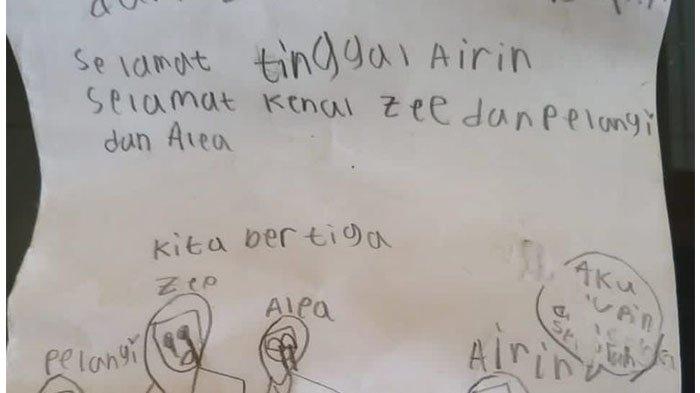 Selamat tinggal Airin
Selamat kenal zee dan pelangi
dan Alea
Kita bertiga
Zee
Alea
Pelangi
Airin
AKU